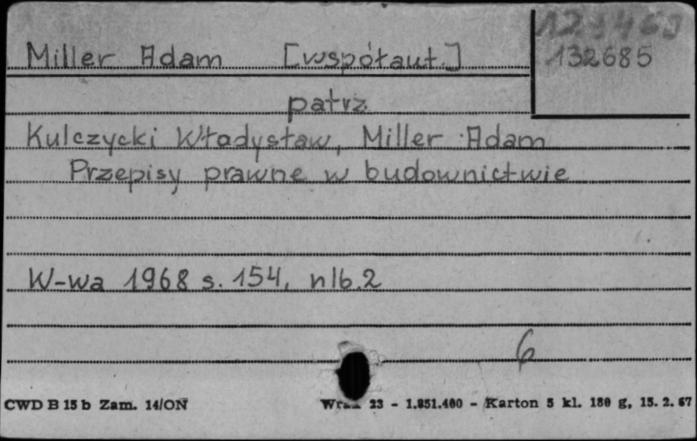 129469
Miller Adam [współaut.] 132685
patrz
Kulczycki Władysław, Miller Adam
Przepisy prawne w budownictwie
W-wa 1968 s. 154, nlb. 2
6
CWD B 15 b Zam. 14/ON 23 - 1.851.400 - Karton 5 kl. 180 g, 15. 2. 67